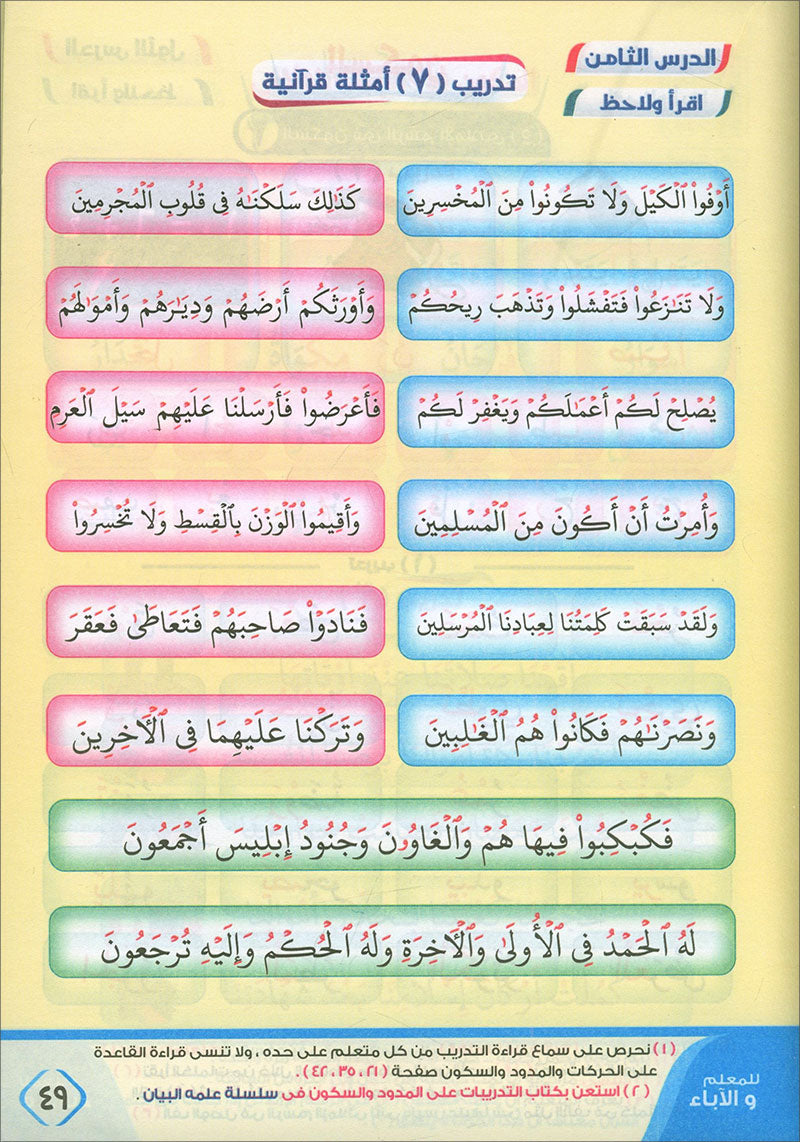 الدرس الثامن
اقرأ ولاحظ
تدريب (٧) أمثلة قرآنية
أَوْفُوا۟ ٱلْكَيْلَ وَلَا تَكُونُوا۟ مِنَ ٱلْمُخْسِرِينَ
كَذَٰلِكَ سَلَكْنَـٰهُ فِى قُلُوبِ ٱلْمُجْرِمِينَ
وَلَا تَنَـٰزَعُوا۟ فَتَفْشَلُوا۟ وَتَذْهَبَ رِيحُكُمْ
وَأَوْرَثَكُمْ أَرْضَهُمْ وَدِيَـٰرَهُمْ وَأَمْوَٰلَهُمْ
يُصْلِحْ لَكُمْ أَعْمَـٰلَكُمْ وَيَغْفِرْ لَكُمْ
فَأَعْرَضُوا۟ فَأَرْسَلْنَا عَلَيْهِمْ سَيْلَ ٱلْعَرِمِ
وَأُمِرْتُ أَنْ أَكُونَ مِنَ ٱلْمُسْلِمِينَ
وَأَقِيمُوا۟ ٱلْوَزْنَ بِٱلْقِسْطِ وَلَا تُخْسِرُوا۟
وَلَقَدْ سَبَقَتْ كَلِمَتُنَا لِعِبَادِنَا ٱلْمُرْسَلِينَ
فَنَادَوْا۟ صَاحِبَهُمْ فَتَعَاطَىٰ فَعَقَرَ
وَنَصَرْنَـٰهُمْ فَكَانُوا۟ هُمُ ٱلْغَـٰلِبِينَ
وَتَرَكْنَا عَلَيْهِمَا فِى ٱلْـَٔاخِرِينَ
فَكُبْكِبُوا۟ فِيهَا هُمْ وَٱلْغَاوُۥنَ وَجُنُودُ إِبْلِيسَ أَجْمَعُونَ
لَهُ ٱلْحَمْدُ فِى ٱلْأُولَىٰ وَٱلْـَٔاخِرَةِ وَلَهُ ٱلْحُكْمُ وَإِلَيْهِ تُرْجَعُونَ
للمعلم
و الآباء
(١) نحرص على سماع قراءة التدريب من كل متعلم على حده ، ولا تنسى قراءة القاعدة
على الحركات والمدود والسكون صفحة (٢١ ، ٣٥ ، ٤٢) .
(٢) استعن بكتاب التدريبات على المدود والسكون فى سلسلة علمه البيان .
٤٩